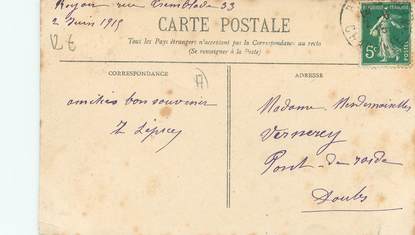 Royan rue Tremblade 33
2 Juin 1915
12 €
CARTE POSTALE
Tous les Pays étrangers n'acceptent pas la Correspondance au recto
(Se renseigner à la Poste)
CORRESPONDANCE
ADRESSE
amitiés bon souvenir
Madame Mesdemoiselles
Vernerey
Pont-de-roide
Doubs